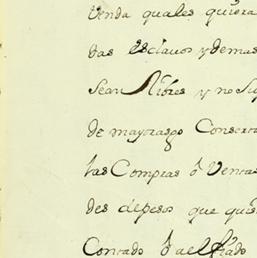 venda quales quiera
das esclavos y demas
sean libres y no su
de mayorasgo Conser
las Compras o Ventas
des depeso que qui
Contado o al fiado